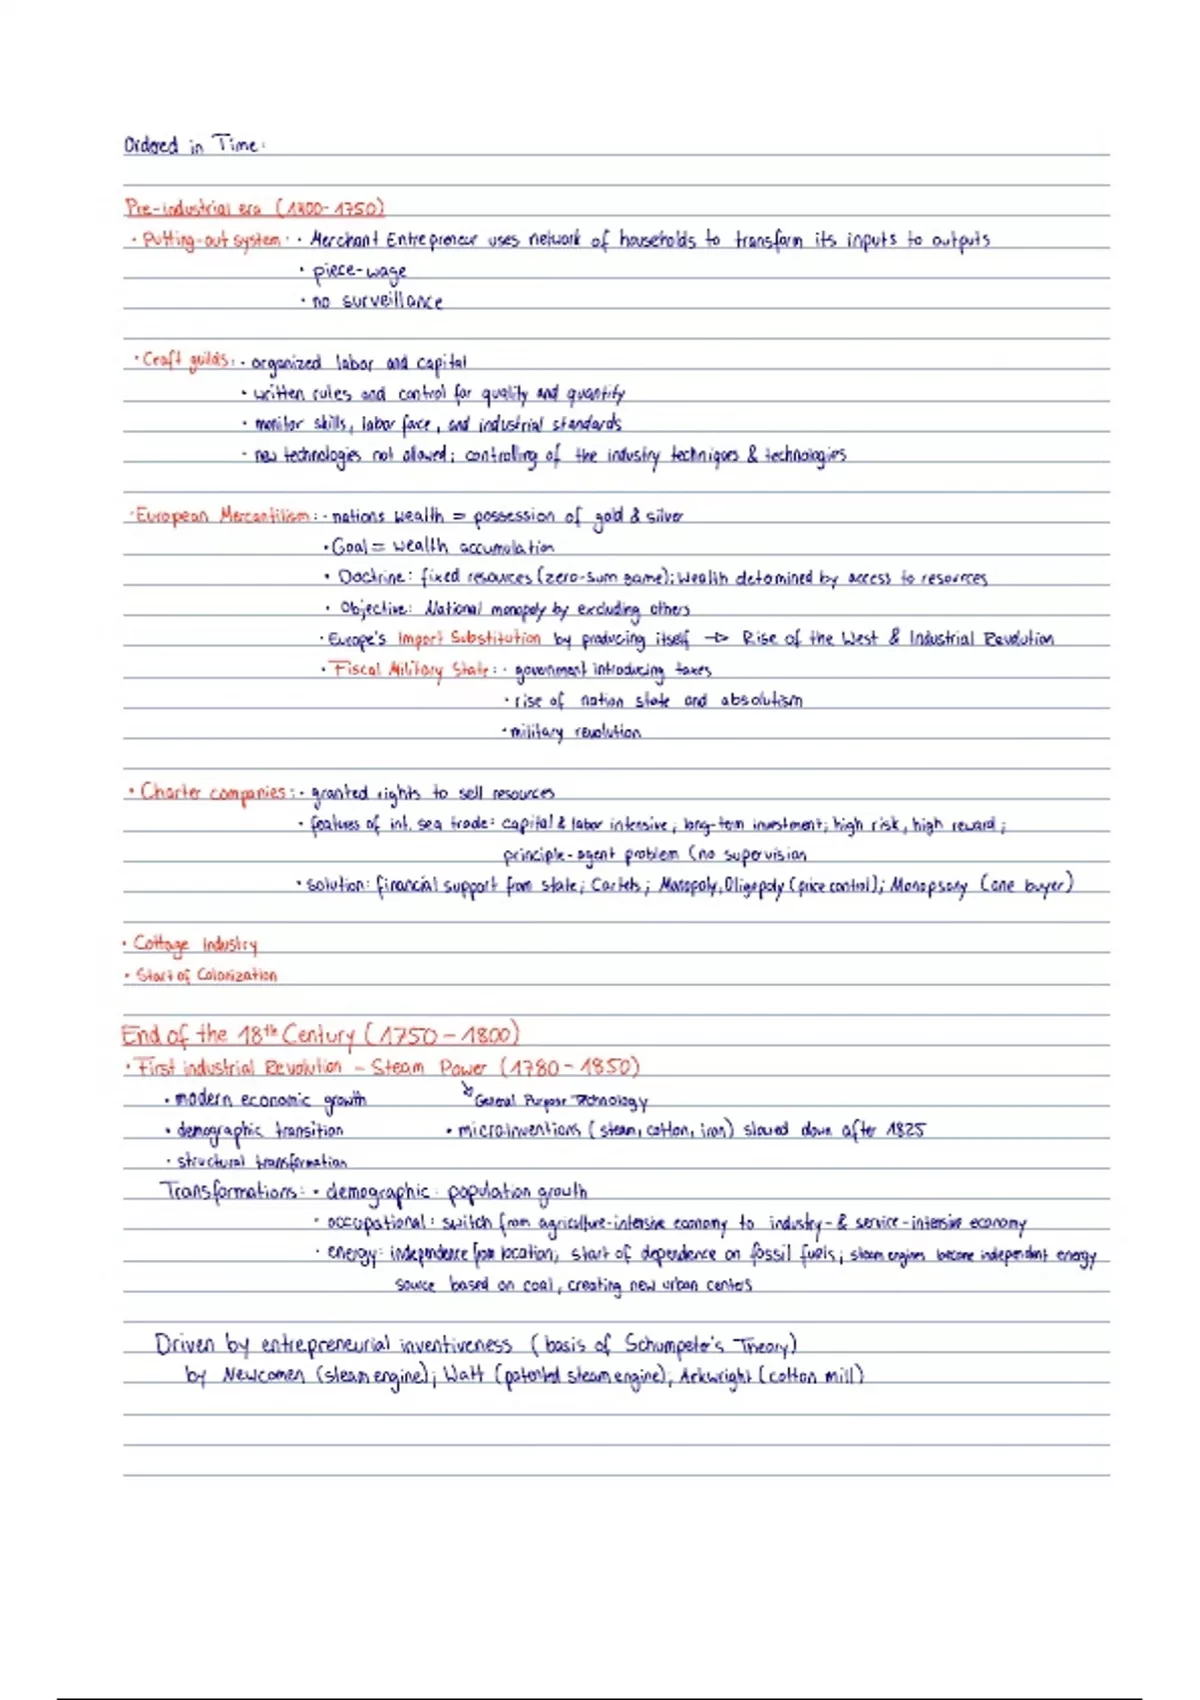 Ordered in Time:
Pre-industrial era (1300-1750)
• Putting-out system: • Merchant Entrepreneur uses network of households to transform its inputs to outputs
• piece-wage
• no surveillance
• Craft guilds: • organized labor and capital
• written rules and control for quality and quantity
• monitor skills, labor force, and industrial standards
- new technologies not allowed; controlling of the industry techniques & technologies
• European Mercantilism: • nations wealth = possession of gold & silver
• Goal = wealth accumulation
• Doctrine: fixed resources (zero-sum game); Wealth determined by access to resources
• Objective: National monopoly by excluding others
• Europe's Import Substitution by producing itself → Rise of the West & Industrial Revolution
• Fiscal Military State: • government introducing taxes
• rise of nation state and absolutism
• military revolution
• Charter companies: • granted rights to sell resources
• features of int. sea trade: capital & labor intensive; long-term investment; high risk, high reward;
principle-agent problem (no supervision
• solution: financial support from state; Cartels; Monopoly, Oligopoly (price control); Monopsony (one buyer)
• Cottage Industry
• Start of Colonization
End of the 18th Century (1750-1800)
• First industrial Revolution - Steam Power (1780-1850)
• modern economic growth ↘ General Purpose Technology
• demographic transition • microinventions (steam, cotton, iron) slowed down after 1825
• structural transformation
Transformations: • demographic: population growth
• occupational: switch from agriculture-intensive economy to industry- & service-intensive economy
• energy: independence from location; start of dependence on fossil fuels; steam engines become independent energy
source based on coal, creating new urban centers
Driven by entrepreneurial inventiveness (basis of Schumpeter's Theory)
by Newcomen (steam engine); Watt (patented steam engine); Arkwright (cotton mill)